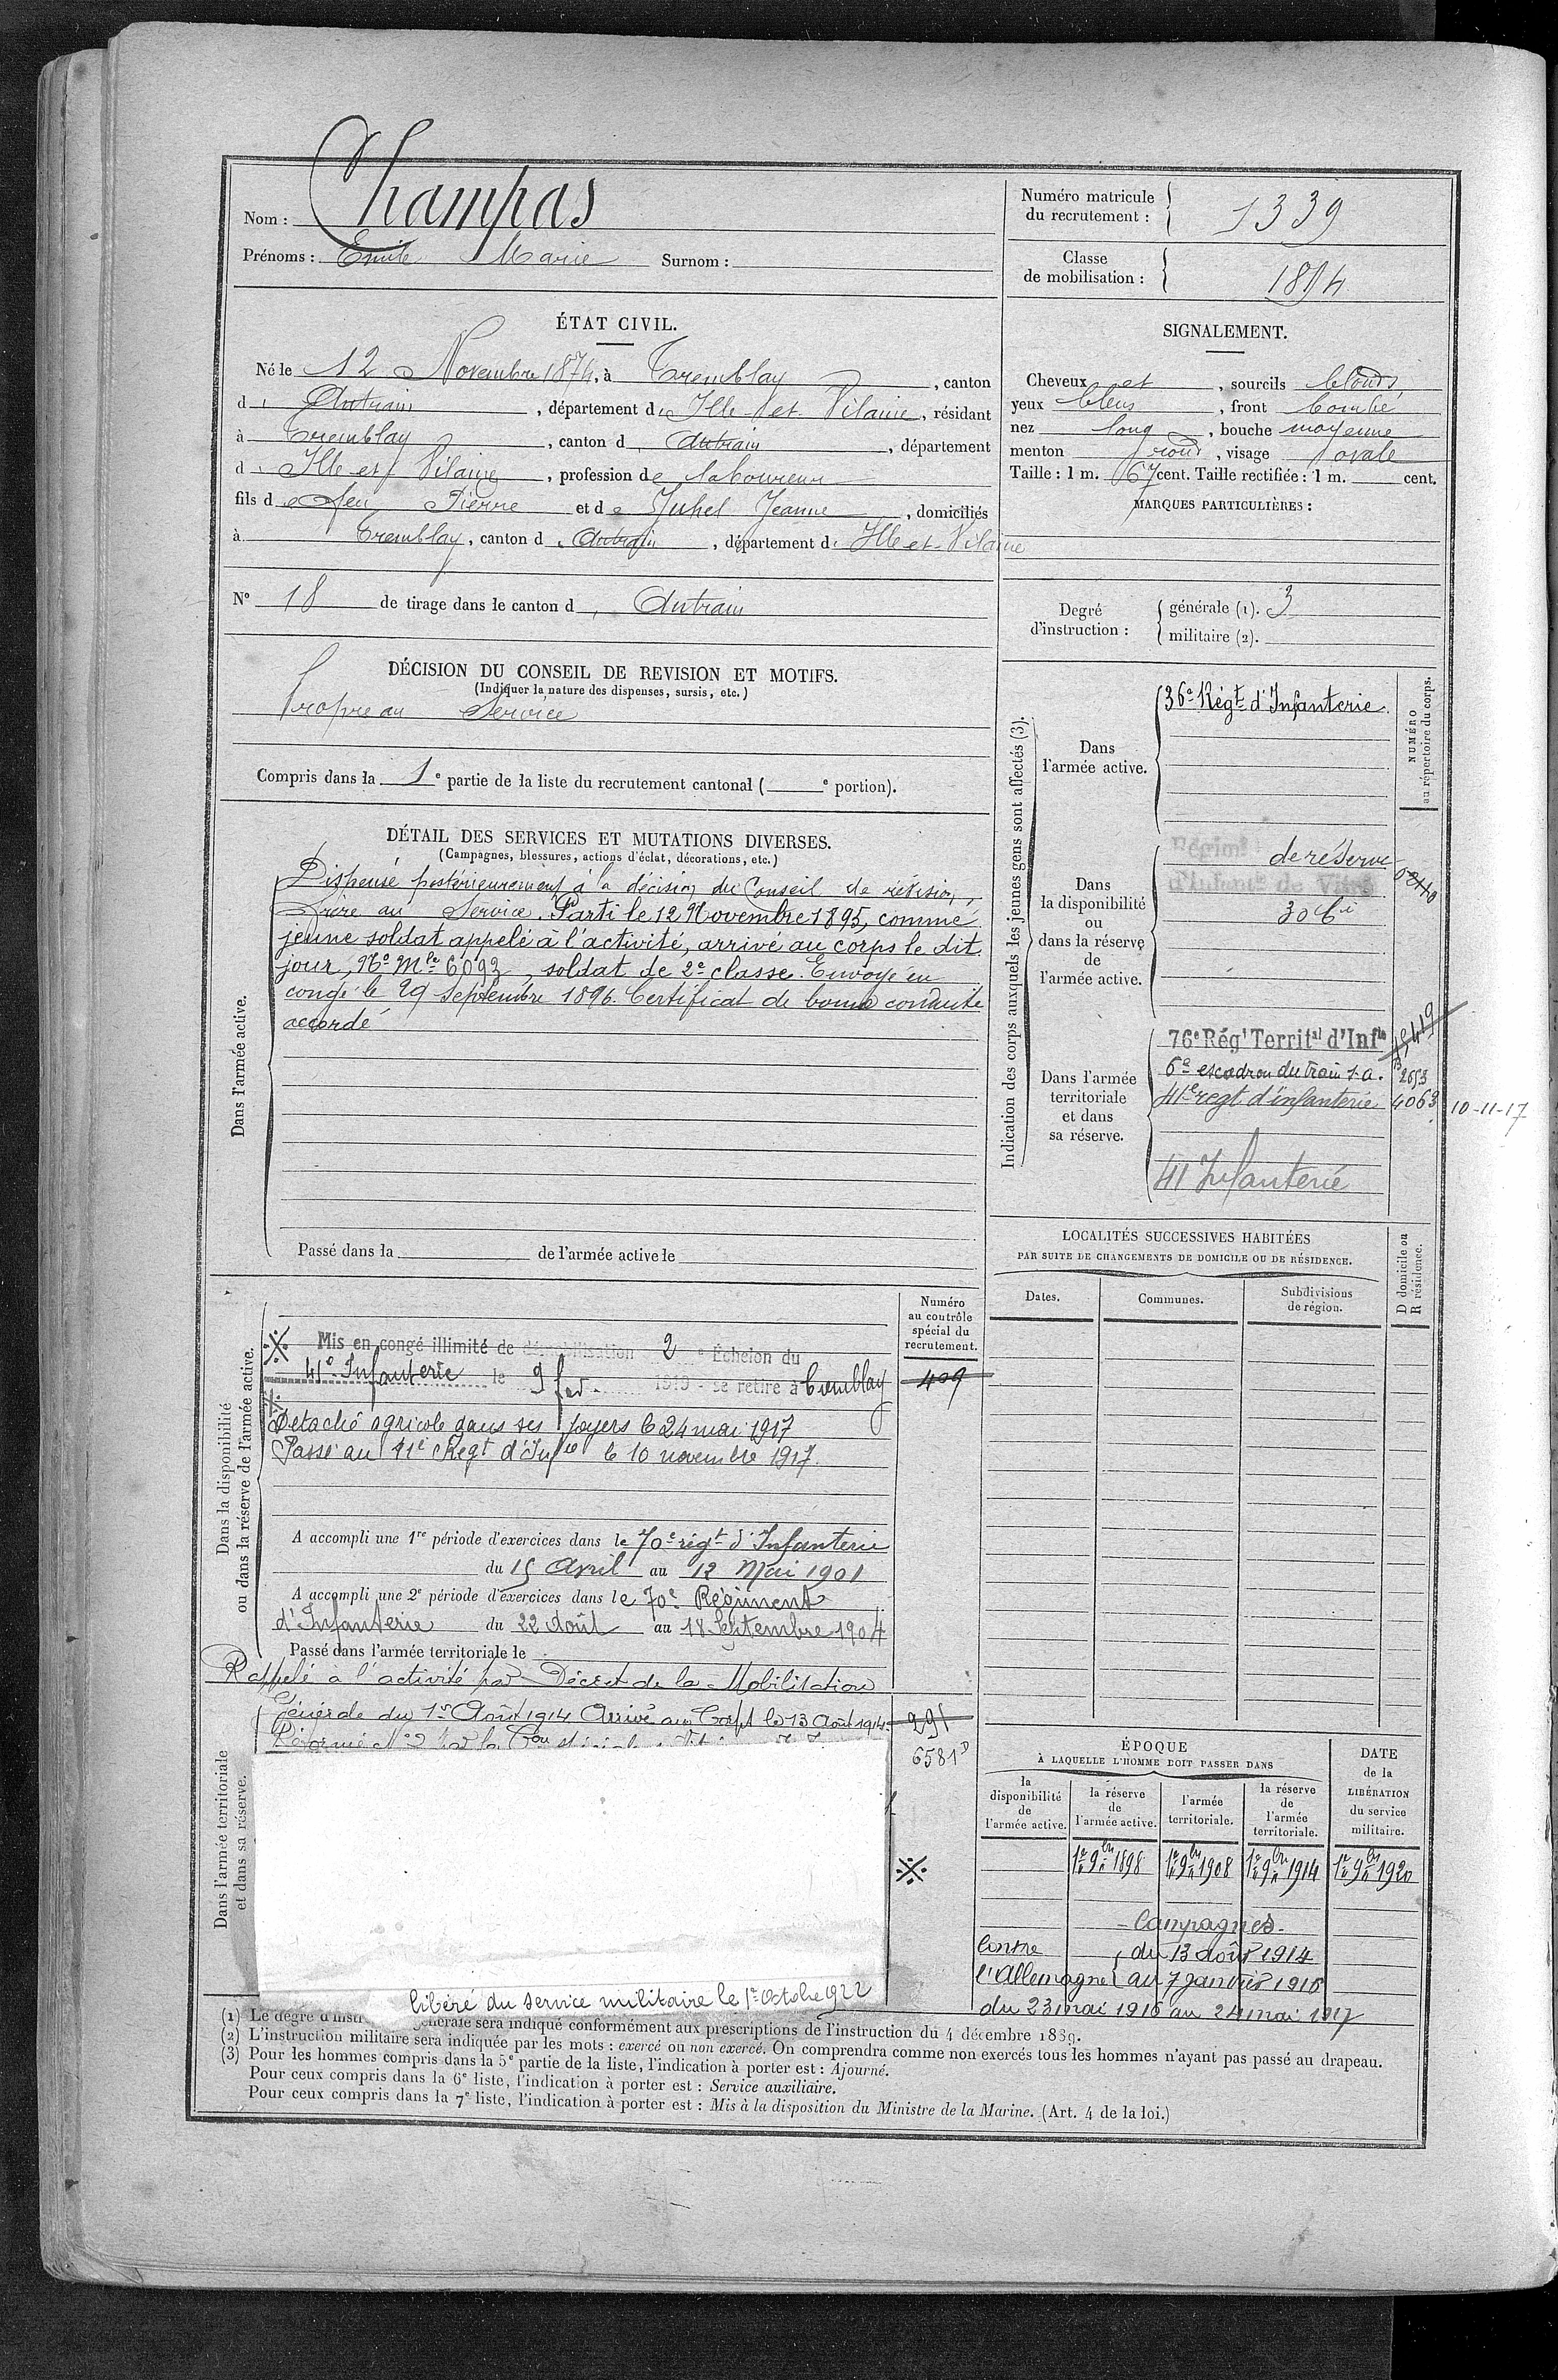 Nom : Champas
Prénoms : Emile Marie Surnom :
Numéro matricule du recrutement : 1339
Classe de mobilisation : 1894
ÉTAT CIVIL.
Né le 12 Novembre 1874, à Tremblay, canton
d'Antrain, département d'Ille-et-Vilaine, résidant
à Tremblay, canton d'Antrain, département
d'Ille et Vilaine, profession de laboureur
fils de feu Pierre et de Juhel Jeanne, domiciliés
à Tremblay, canton d'Antrain, département d'Ille et-Vilaine
N° 18 de tirage dans le canton d'Antrain
SIGNALEMENT.
Cheveux et, sourcils blonds
yeux bleus, front bombé
nez long, bouche moyenne
menton rond, visage ovale
Taille : 1 m. 67 cent. Taille rectifiée : 1 m. cent.
MARQUES PARTICULIÈRES :
Degré d'instruction : générale (1). 3
militaire (2).
DÉCISION DU CONSEIL DE REVISION ET MOTIFS.
(Indiquer la nature des dispenses, sursis, etc.)
Propre au Service
Compris dans la 1e partie de la liste du recrutement cantonal ( e portion).
DÉTAIL DES SERVICES ET MUTATIONS DIVERSES.
(Campagnes, blessures, actions d'éclat, décorations, etc.)
Dans l'armée active.
Dispensé postérieurement à la décision du Conseil de révision,
frère au Service. Parti le 12 Novembre 1895, comme
jeune soldat appelé à l'activité, arrivé au corps le dit
jour, No Mle 6093, soldat de 2e classe. Envoyé en
congé le 29 septembre 1896. Certificat de bonne conduite
accordé
Passé dans la de l'armée active le
Indication des corps auxquels les jeunes gens sont affectés (3).
NUMÉRO au répertoire du corps.
Dans l'armée active.
36e Régt d'Infanterie.
Dans la disponibilité ou dans la réserve de l'armée active.
Régimt de réserve
d'Infante de Vitré
Dans l'armée territoriale et dans sa réserve.
76e Régt Territal d'Infie
6e escadron du train 2653
41e regt d'infanterie 4063 10-11-17
41 Infanterie
LOCALITÉS SUCCESSIVES HABITÉES
PAR SUITE DE CHANGEMENTS DE DOMICILE OU DE RÉSIDENCE.
Dates. Communes. Subdivisions de région. D domicile ou R résidence.
Dans la disponibilité ou dans la réserve de l'armée active.
Numéro au contrôle spécial du recrutement.
409
Mis en congé illimité de démobilisation 2e Échelon du
41e Infanterie le 9 fev. 1919 se retire à Tremblay
Détaché agricole dans ses foyers le 24 mai 1917
Passé au 41e Régt d'Infie le 10 novembre 1917.
A accompli une 1re période d'exercices dans le 70e régt d'Infanterie
du 15 Avril au 12 Mai 1901
A accompli une 2e période d'exercices dans le 70e Régiment
d'Infanterie du 22 Août au 18 Septembre 1904
Passé dans l'armée territoriale le
Rappelé à l'activité par Décret de la Mobilisation
Générale du 1er Août 1914 Arrivé au Corps le 13 Août 1914
Réformé No 2 par la Con
291
6581
Dans l'armée territoriale et dans sa réserve.
libéré du service militaire le 1er Octobre 1922
ÉPOQUE
À LAQUELLE L'HOMME DOIT PASSER DANS
la disponibilité de l'armée active.
la réserve de l'armée active.
l'armée territoriale.
la réserve de l'armée territoriale.
DATE de la LIBÉRATION du service militaire.
1er 9bre 1898 1er 9bre 1908 1er 9bre 1914 1er 9bre 1920
Campagnes.
Contre l'Allemagne { du 13 août 1914
au 7 janvier 1916
du 23 mai 1916 au 24 mai 1917
(1) Le degré d'instr générale sera indiqué conformément aux prescriptions de l'instruction du 4 décembre 1889.
(2) L'instruction militaire sera indiquée par les mots : exercé ou non exercé. On comprendra comme non exercés tous les hommes n'ayant pas passé au drapeau.
(3) Pour les hommes compris dans la 5e partie de la liste, l'indication à porter est : Ajourné.
Pour ceux compris dans la 6e liste, l'indication à porter est : Service auxiliaire.
Pour ceux compris dans la 7e liste, l'indication à porter est : Mis à la disposition du Ministre de la Marine. (Art. 4 de la loi.)